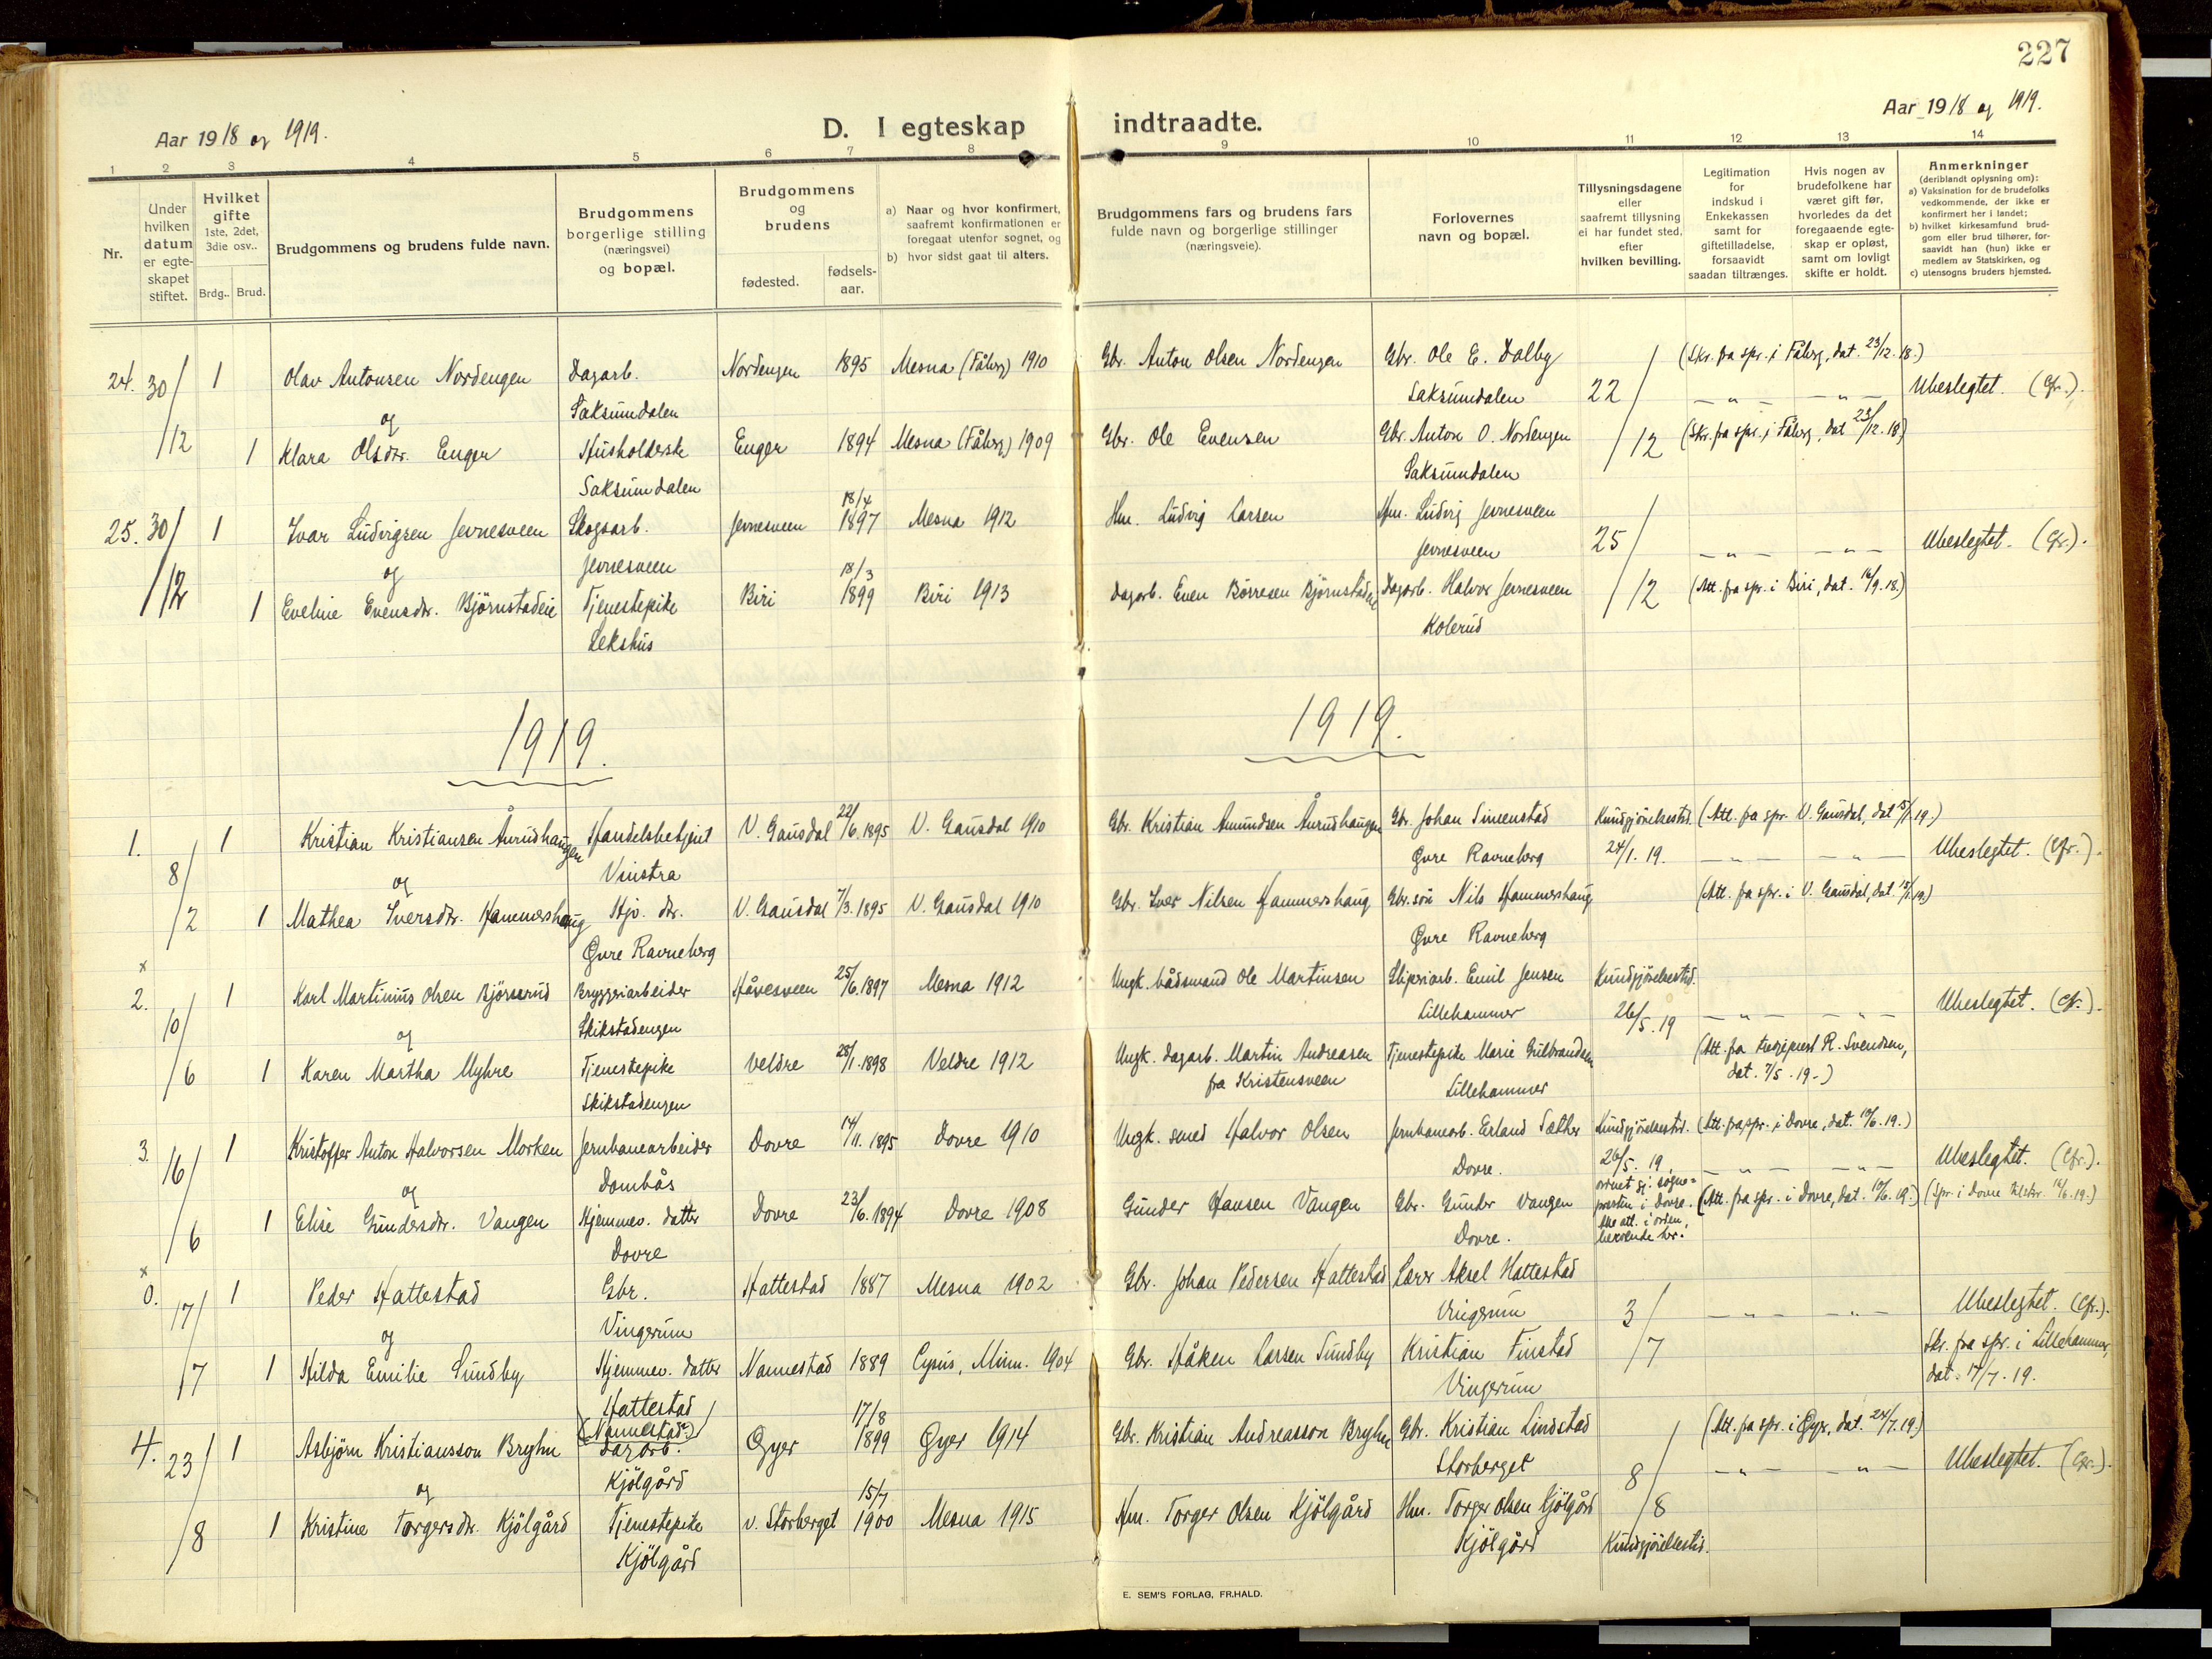 227
Aar 1918 og 1919.
D. I egteskap indtraadte.
Aar 1918 og 1919.
1 2 3 4 5 6 7 8 9 10 11 12 13 14
Nr.
Under hvilken datum er egteskapet stiftet.
Hvilket gifte 1ste, 2det, 3die osv..
Brdg.. Brud.
Brudgommens og brudens fulde navn.
Brudgommens borgerlige stilling (næringsvei) og bopæl.
Brudgommens og brudens
fødested.
fødsels-aar.
a) Naar og hvor konfirmert, saafremt konfirmationen er foregaat utenfor sognet, og
b) hvor sidst gaat til alters.
Brudgommens fars og brudens fars fulde navn og borgerlige stillinger (næringsveie).
Forlovernes navn og bopæl.
Tillysningsdagene eller saafremt tillysning ei har fundet sted, efter hvilken bevilling.
Legitimation for indskud i Enkekassen samt for giftetilladelse, forsaavidt saadan tiltrænges.
Hvis nogen av brudefolkene har været gift før, hvorledes da det foregaaende egteskap er opløst, samt om lovligt skifte er holdt.
Anmerkninger (deriblandt oplysning om):
a) Vaksination for de brudefolks vedkommende, der ikke er konfirmert her i landet;
b) hvilket kirkesamfund brudgom eller brud tilhører, forsaavidt han (hun) ikke er medlem av Statskirken, og
c) utensogns bruders hjemsted.
24. 30/12 1 Olav Antonsen Nordengen Dagarb. Saksumdalen Nordengen 1895 Mesna (Fåbrg) 1910 Gbr. Anton Olsen Nordengen Gbr. Ole E. Dalby Saksumdalen 22/12 (Skr. fra spr. i Fåbrg, dat. 23/12. 18.) — " — — " — Ubeslegtet. (Cfr.).
og
1 Klara Olsdtr. Enger Husholderske Saksumdalen Enger 1894 Mesna (Fåbrg) 1909 Gbr. Ole Evensen Gbr. Anton O. Nordengen Saksumdalen (Skr. fra spr. i Fåbrg, dat 23/12. 18.)
25. 30/12 1 Ivar Ludvigsen Jevnesveen Skogsarb. Jevnesveen Jevnesveen 18/4 1897 Mesna 1912 Hm. Ludvig Larsen Hm. Ludvig Jevnesveen Jevnesveen 25/12 — " — — " — Ubeslegtet. (Cfr.).
og
1 Eveline Evensdtr. Bjørnstadeie Tjenestepike Lekshus Biri 18/3 1899 Biri 1913 Dagarb. Even Børresen Bjørnstadeie Dagarb. Halvor Jevnesveen Kolerud (Att. fra spr. i Biri, dat. 16/9. 18.)
1919. 1919.
1. 8/2 1 Kristian Kristiansen Åurudhaugen Handelsbetjent Vinstra V. Gausdal 22/6. 1895 V. Gausdal 1910 Gbr. Kristian Amundsen Åurudhaugen Gbr. Johan Simenstad Øvre Ravneberg Kundgjörelsestid. 24/1. 19. (Att. fra spr. V. Gausdal, dat 15/1. 19.) — " — — " — Ubeslegtet. (Cfr.).
og
1 Mathea Iversdtr. Hammershaug Hjv. dtr. Øvre Ravneberg V. Gausdal 7/3. 1895 V. Gausdal 1910 Gbr. Iver Nilsen Hammershaug Gbr. søn Nils Hammershaug Øvre Ravneberg (Att. fra spr. i V. Gausdal, dat. 15/1. 19.)
x
2. 10/6 1 Karl Martinius Olsen Bjørserud Bryggeriarbeider Skikstadengen Håvesveen 25/6. 1897 Mesna 1912 Ungk. bådsmand Ole Martinsen Skiperiarb. Emil Jensen Lillehammer Kundgjörelsestid. 26/5. 19 — " — — " — Ubeslegtet. (Cfr.).
og
1 Karen Martha Myhre Tjenestepike Skikstadengen Veldre 28/1. 1898 Veldre 1912 Ungk. dagarb. Martin Andreasen fra Kristensveen Tjenestepike Marie Gulbrandsen Lillehammer (Att. fra tredjeprest R. Svendsen, dat. 7/5. 19.)
3. 16/6 1 Kristoffer Anton Halvorsen Morken Jernbanearbeider Dombås Dovre 14/11. 1895 Dovre 1910 Ungk. smed Halvor Olsen Jernbanearb. Erland Sæther Dovre. Kundgjörelsestid. 26/5. 19. (Att. fra spr. i Dovre, dat. 10/6. 19.) — " — — " — Ubeslegtet. (Cfr.).
og
1 Elise Gundersdtr. Vangen Hjemmev. datter Dovre Dovre 23/6. 1894 Dovre 1908 Gunder Hansen Vangen Gbr. Gunder Vangen Dovre. ordnet gj. sogneprestin i Dovre. Alle att. i orden, beroende her. (Att. fra spr. i Dovre, dat. 10/6. 19.) (Spr. i Dovre tilskr. 16/6. 19.)
x
0. 17/7 1 Peder Hattestad Gbr. Vingerum Hattestad 1887 Mesna 1902 Gbr. Johan Pedersen Hattestad Lærer Aksel Hattestad Vingerum 3/7 — " — — " — Ubeslegtet. (Cfr.).
og
1 Hilda Emilie Sundby Hjemmev. datter Hattestad (Nannestad) Nannestad 1889 Cyrus, Minn. 1904 Gbr. Håken Larsen Sundby Kristian Finstad Vingerum Skr. fra spr. i Lillehammer, dat. 17/7. 19.
4. 23/8 1 Asbjørn Kristiansson Bryhn Dagarb. Kjölgård Øyer 17/8 1899 Øyer 1914 Gbr. Kristian Andreasson Bryhn Gbr. Kristian Lindstad Storberget 8/8 (Att. fra spr. i Øyer, dat. 24/7. 19) — " — — " — Ubeslegtet. (Cfr.).
og
1 Kristine Torgersdtr. Kjölgård Tjenestepike Kjölgård v. Storberget 15/7 1900 Mesna 1915 Hm. Torger Olsen Kjölgård Hm. Torger Olsen Kjölgård Kjölgård Kundgjörelsestid.
E. SEM'S FORLAG, FR.HALD.